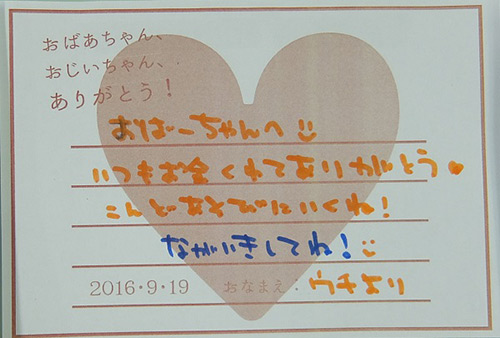 おばあちゃん、
おじいちゃん、
ありがとう!
おばーちゃんへ
いつもお金くれてありがとう
こんどあそびにいくね!
ながいきしてね!
2016・9・19 おなまえ. ウチより